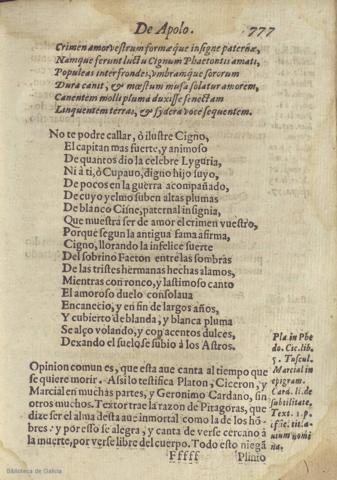 De Apolo. 777
Crimen amor vestrum formæque insigne paternæ,
Namque ferunt luctu Cignum Phaetontis amati,
Populeas inter frondes, vmbramque sororum
Dura canit, & mœstum musa solatur amorem,
Canentem molli pluma duxisse senectam
Linquentem terras, & sydera voce sequentem.
No te podre callar, ò ilustre Cigno,
El capitan mas fuerte, y animoso
De quantos dio la celebre Lyguria,
Ni à ti, ò Cupauo, digno hijo suyo,
De pocos en la guerra acompañado,
De cuyo yelmo suben altas plumas
De blanco Cisne, paternal insignia,
Que muestra ser de amor el crimen vuestro,
Porque segun la antigua fama afirma,
Cigno, llorando la infelice suerte
Del sobrino Faeton entre las sombras
De las tristes hermanas hechas alamos,
Mientras con ronco, y lastimoso canto
El amoroso duelo consolaua
Encanecio, y en fin de largos años,
Y cubierto de blanda, y blanca pluma
Se alço volando, y con acentos dulces,
Dexando el suelo se subio à los Astros.
Opinion comun es, que esta aue canta al tiempo que
se quiere morir. Assi lo testifica Platon, Ciceron, y
Marcial en muchas partes, y Geronimo Cardano, sin
otros muchos. Textor trae la razon de Pitagoras, que
dize ser el alma desta aue inmortal como la de los hō-
bres: y por esso se alegra, y canta de verse cercano à
la muerte, por verse libre del cuerpo. Todo esto niega
Fffff Plinio
Pla. in Phe
do. Cic. lib.
5. Tuscul.
Marcial in
epigram.
Card. li. de
subtilitate,
Text. 1. p.
offic. tit. a-
uium nomi
na.
Biblioteca de Galicia